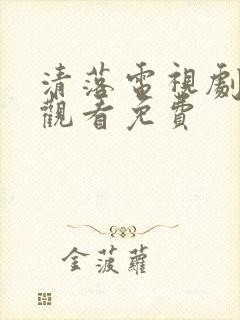 清落電視劇
觀看免費
金菠蘿